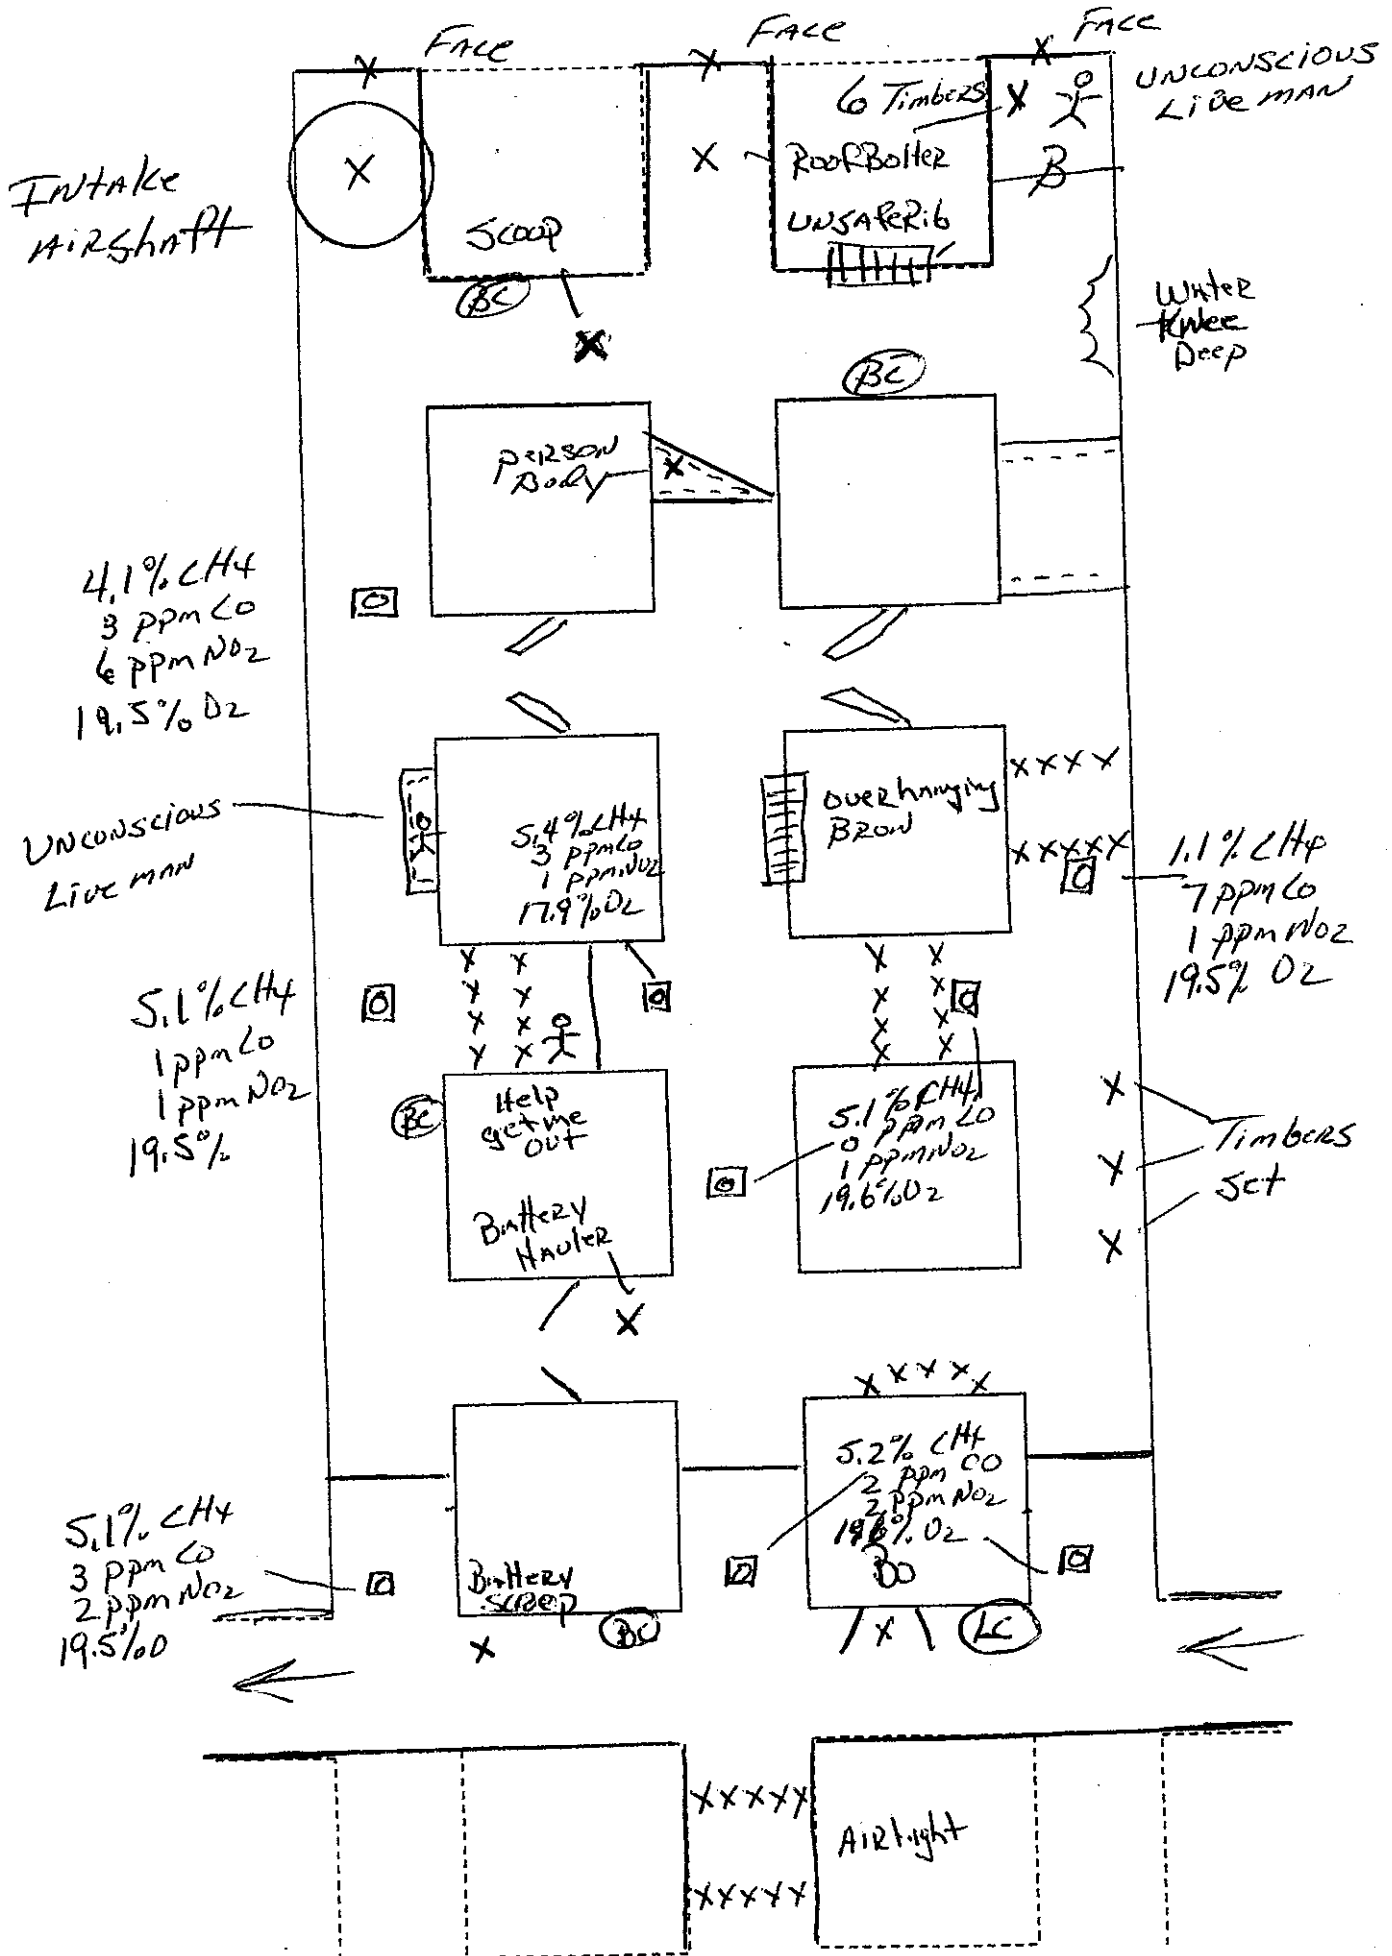 FACE
FACE
FACE
UNCONSCIOUS
Live MAN
6 Timbers
X
X
X
X
X
X
RoofBolter
B
INTAKE
AIRShaft
Scoop
UNSAFeRib
BC
X
Water
Knee
Deep
BC
person
Body
X
4.1% CH4
3 ppm Co
6 ppm NO2
19.5% O2
UNCONSCIOUS
Live MAN
5.4% CH4
3 ppm Co
1 ppm NO2
17.9% O2
overhanging
BROW
XXXX
XXXXX
1.1% CH4
7 ppm Co
1 ppm NO2
19.5% O2
5.1% CH4
1 ppm Co
1 ppm NO2
19.5%
X X
X X
X X
X X
X X
X X
X X
X X
BC
Help
get me
out
Battery
Hauler
X
5.1% CH4
0 ppm CO
1 ppm NO2
19.6% O2
X
X
X
Timbers
Set
XXXXX
5.2% CH4
2 ppm CO
2 ppm NO2
O2
BO
5.1% CH4
3 ppm Co
2 ppm NO2
19.5% O
Battery
scoop
X
BC
X
LC
XXXXX
XXXXX
AIRtight